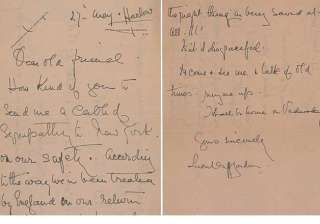 27 May.
Dear old friend
How kind of you to
Send me a cable of
Sympathy to New York
on our safety. According
to the way we've been treated
by England on our return
the right thing in being saved at
all!!!
Isn't it disgraceful.
come & see me & talk of old
times - ring me up -
I shall be home on Wednesday
Yours sincerely
Duff Gordon